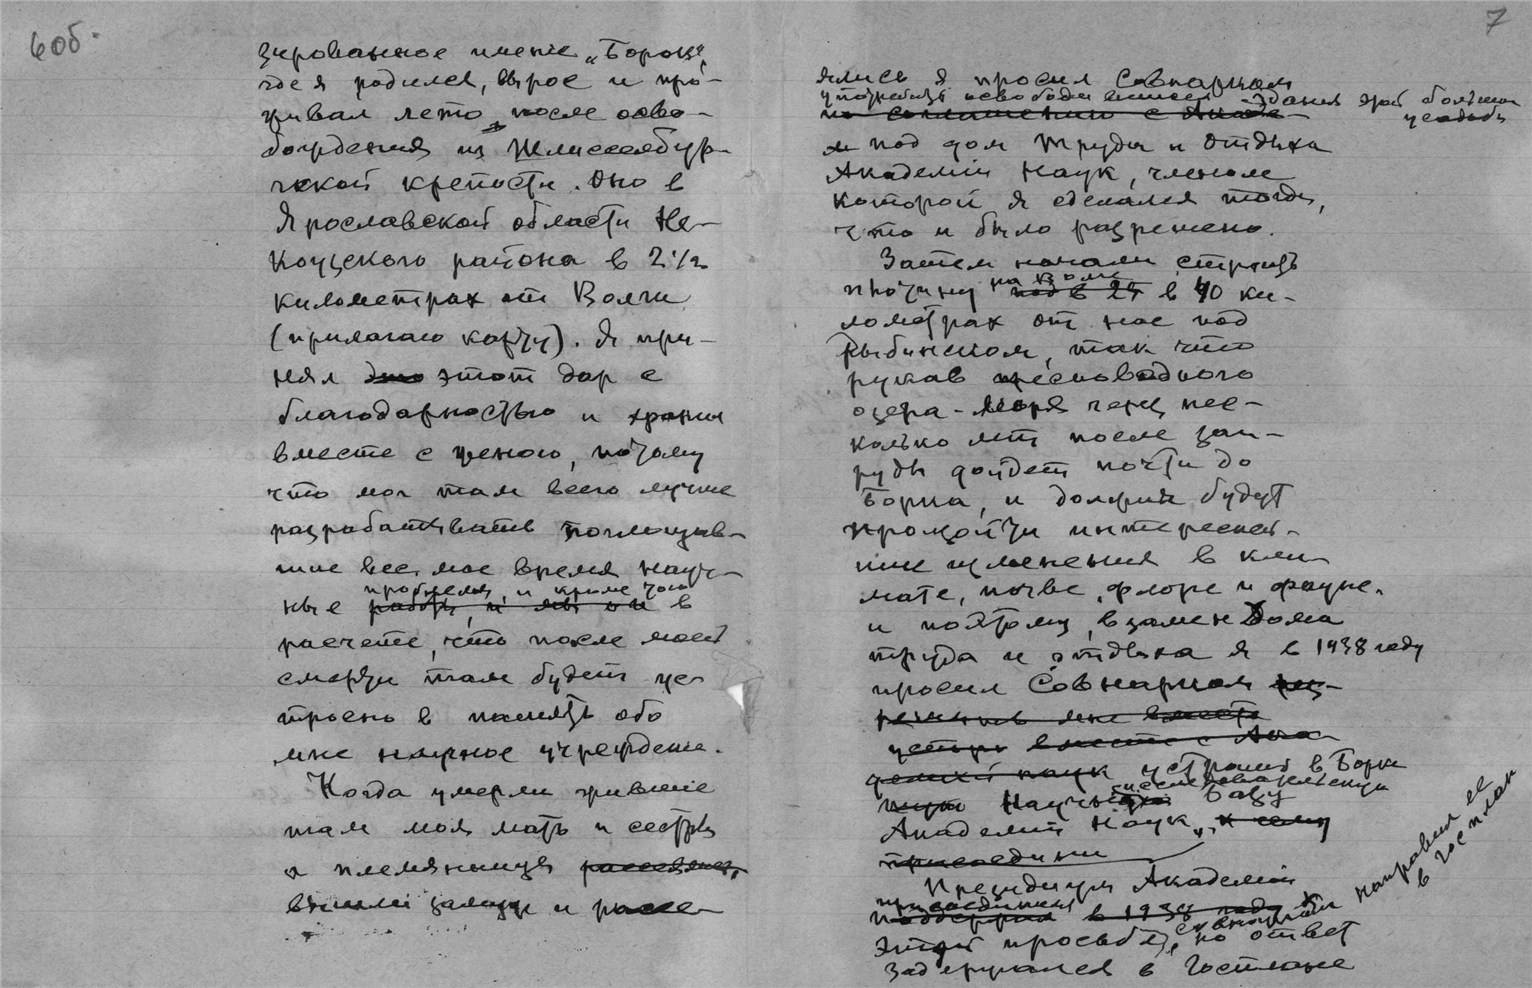 6об.
зированное имение „Борок",
где я родился, вырос и про-
живал лето после осво-
бождения из Шлиссельбур-
гской крепости. Оно в
Ярославской области Не-
коузского района в 2 1/2
километрах от Волги
(прилагаю карту). Я при-
нял это этот дар с
благодарностью и храню
вместе с женою, потому
что мог там всего лучше
разрабатывать поглощав-
шие все мое время науч-
проблемы, и кроме того
ные работы, и мы и в
расчете, что после моей
смерти там будет ус-
троено в память обо
мне научное учреждение.
Когда умерли жившие
там моя мать и сестры
а племянницы рассеялись,
вышли замуж и рассе-
7
ялись я просил Совнарком
употребить освободившиеся здания этой большой усадьбы
по соглашению с Акаде-
и под дом труда и отдыха
Академии Наук, членом
которой я сделался тогда,
что и было разрешено.
Затем начали строить
на Волге
плотину под в 25 в 40 ки-
лометрах от нас под
Рыбинском, так что
рукав пресноводного
озера-моря через нес-
колько лет после зап-
руды дойдет почти до
Борка, и должны будут
произойти интересней-
шие изменения в кли-
мате, почве, флоре и фауне.
и поэтому, взамен Дома
труда и отдыха я в 1938 году
просил Совнарком раз-
решить мне вместо
устроить вместе с Ака-
демией наук устроить в Борке
исследовательскую
Научную базу
Академии Наук, к чему
присоедини
Президиум Академии
присоединился
поддержал в 1938 году
этой просьбе, но ответ
задержался в Госплане
направил ее
в госплан